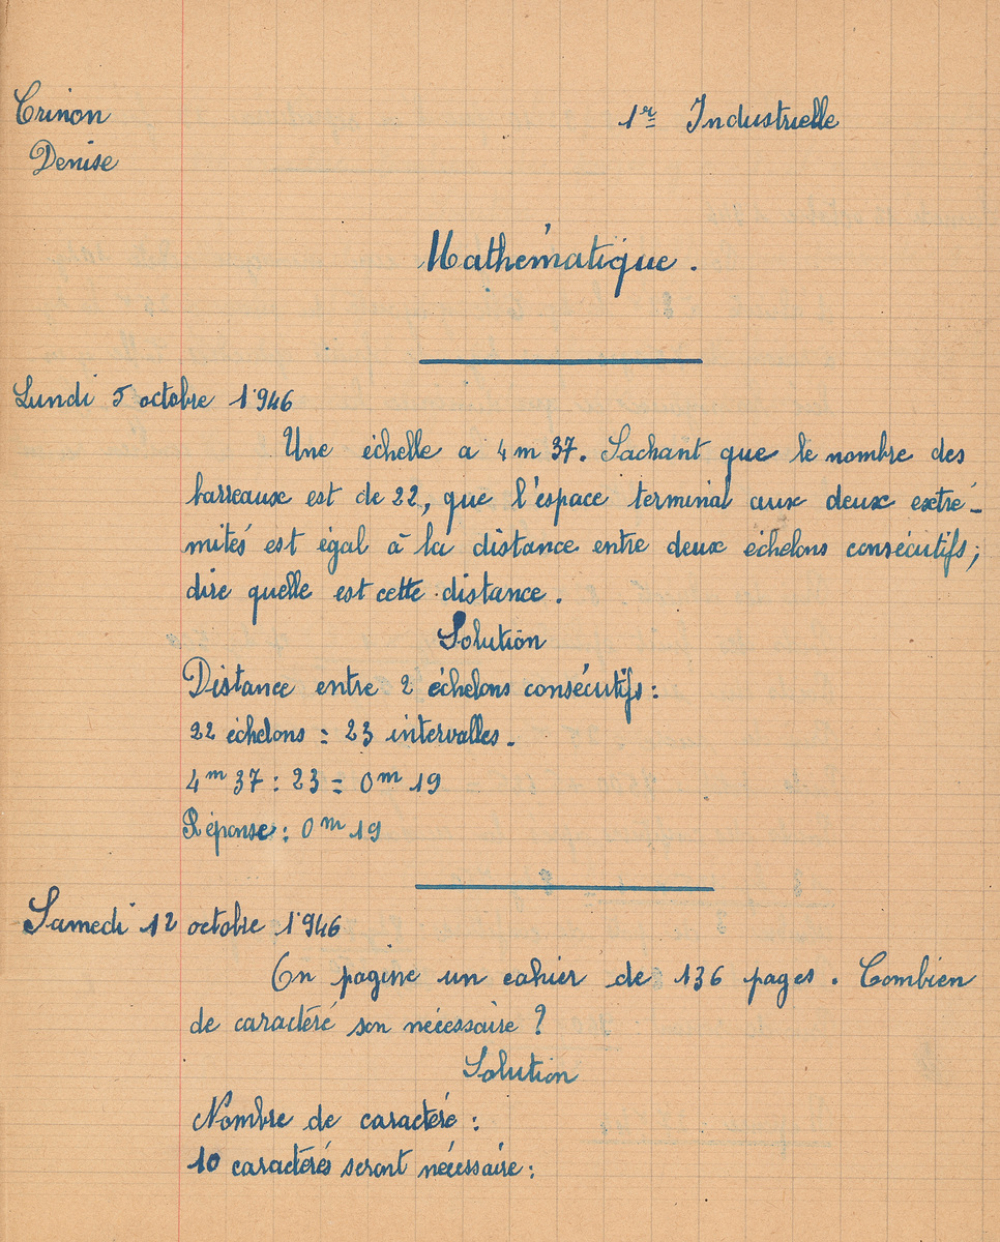 Crinon
Denise
1re Industrielle
Mathématique.
Lundi 5 octobre 1946
Une échelle a 4 m 37. Sachant que le nombre des
barreaux est de 22, que l'espace terminal aux deux extré-
mités est égal à la distance entre deux échelons consécutifs;
dire quelle est cette distance.
Solution
Distance entre 2 échelons consécutifs:
22 échelons = 23 intervalles.
4m 37 : 23 = 0m 19
Réponse: 0m 19
Samedi 12 octobre 1946
On pagine un cahier de 136 pages. Combien
de caractéré son nécessaire ?
Solution
Nombre de caractéré :
10 caractérés seront nécessaire: